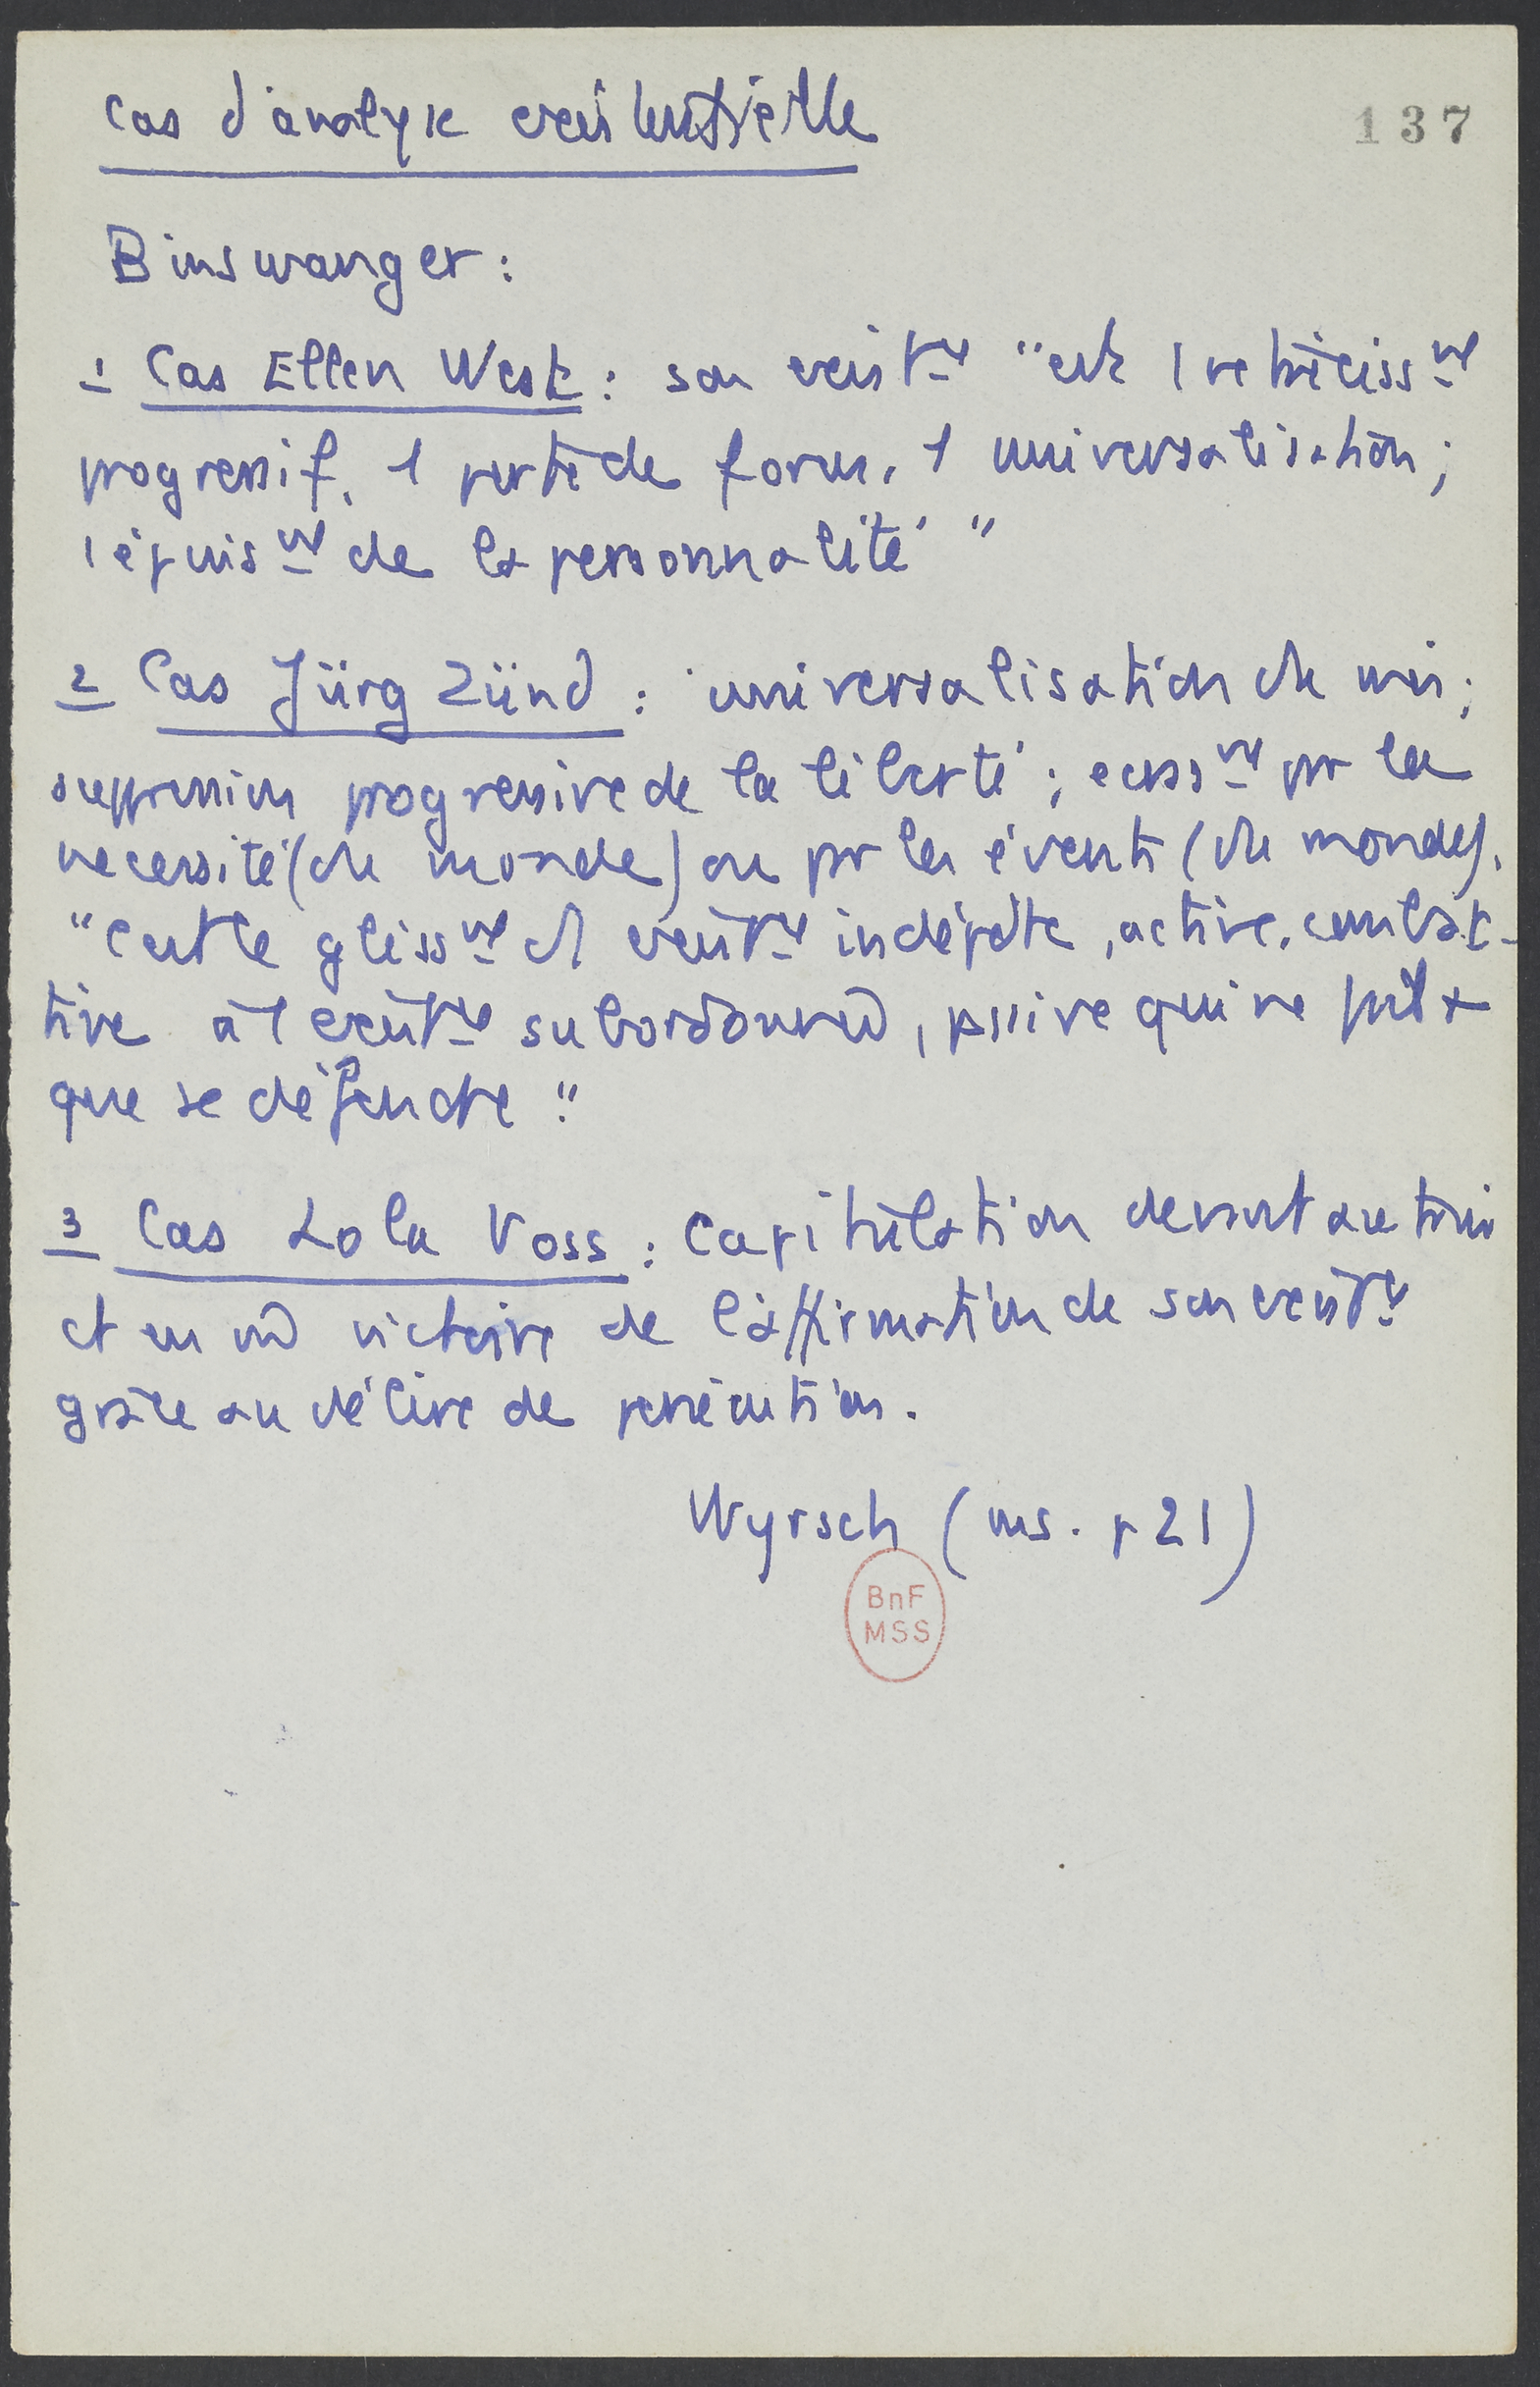 Cas d'analyse existentielle
137
Binswanger :
1 Cas Ellen West : son exist^ce "est 1 rétréciss^nt
progressif, 1 perte de forme, 1 universalisation ;
1 épuis^nt de la personnalité"
2 Cas Jürg Zünd : universalisation du moi ;
suppression progressive de la liberté ; écras^nt pr la
nécessité (du monde) ou pr les évents (du monde).
"C'est le gliss^nt d'1 exist^ce indépdte, active, combat-
tive à 1 exist^ce subordonnée, passive qui ne fait +
que se défendre"
3 Cas Lola Voss : Capitulation devant autrui
et en victoire de l'affirmation de son exist^ce
grâce au délire de persécution.
Wyrsch (ms. p 21)
BnF
MSS